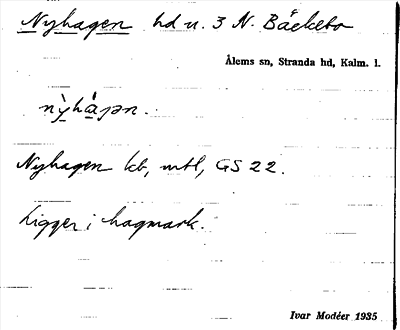 Nyhagen hd u. 3 N. Bäckebo
Ålems sn, Stranda hd, Kalm. l.
Nyhagen kb, mtl, GS 22.
Ligger i hagmark.
Ivar Modéer 1935